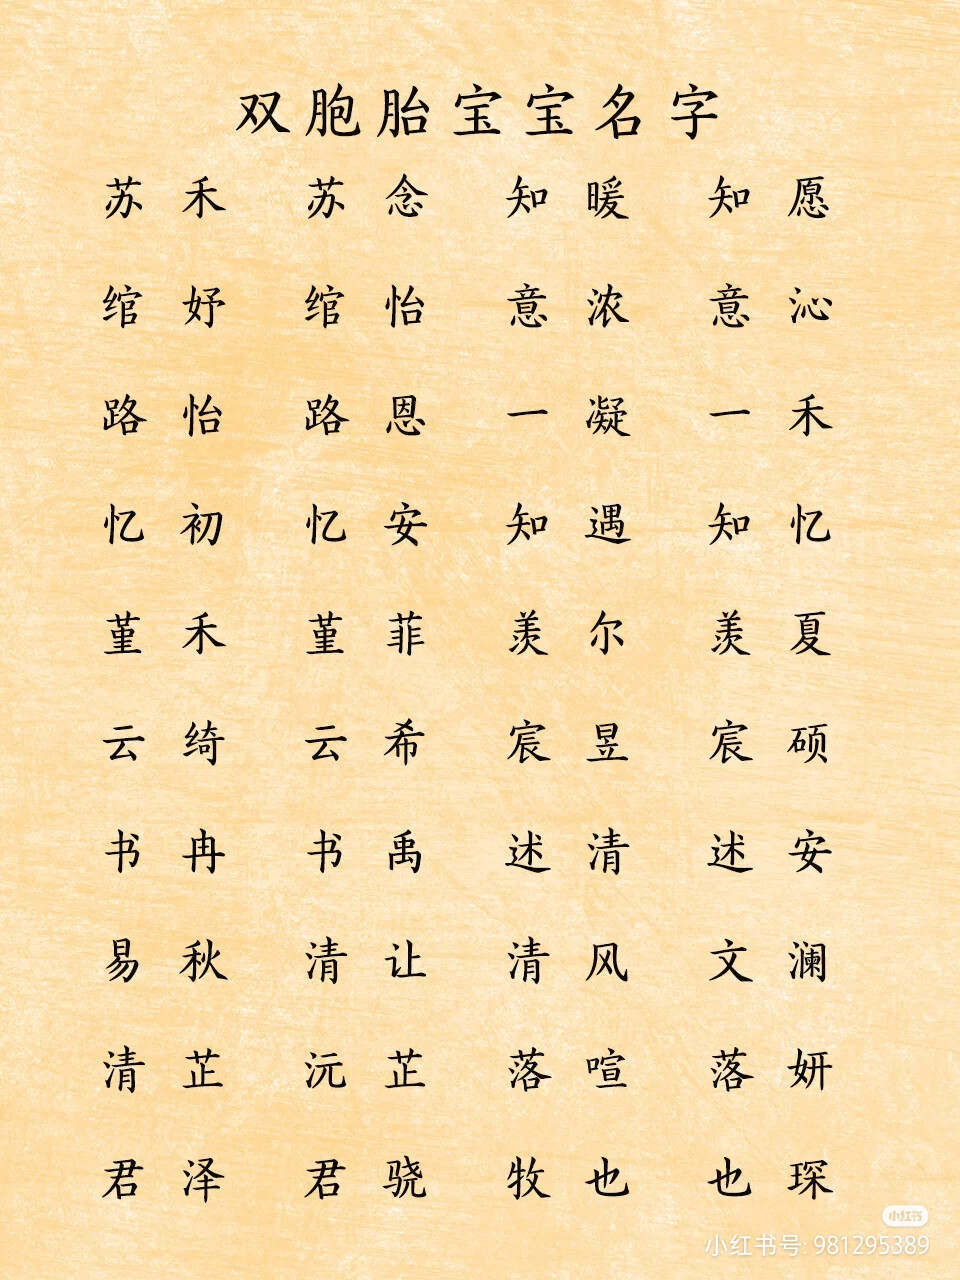 双胞胎宝宝名字
苏禾 苏念 知暖 知愿
绾妤 绾怡 意浓 意沁
路怡 路恩 一凝 一禾
忆初 忆安 知遇 知忆
堇禾 堇菲 羡尔 羡夏
云绮 云希 宸昱 宸硕
书冉 书禹 述清 述安
易秋 清让 清风 文澜
清芷 沅芷 落喧 落妍
君泽 君骁 牧也 也琛
小红书
小红书号: 981295389